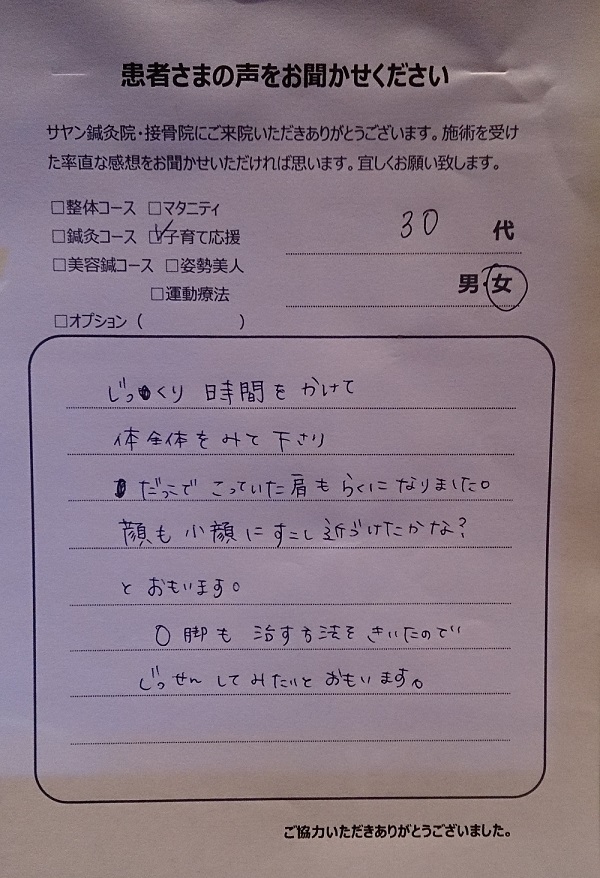 患者さまの声をお聞かせください
サヤン鍼灸院・接骨院にご来院いただきありがとうございます。施術を受け
た率直な感想をお聞かせいただければ思います。宜しくお願い致します。
□整体コース □マタニティ
□鍼灸コース ☑子育て応援
□美容鍼コース □姿勢美人
□運動療法
□オプション（　　　　　）
30 代
男・女
じっくり 時間を かけて
体全体を みて 下さり
だっこで こっていた肩も らくに なりました。
顔も 小顔に すこし 近づけたかな?
と おもいます。
O脚も 治す方法を きいたので
じっせん してみたいと おもいます。
ご協力いただきありがとうございました。